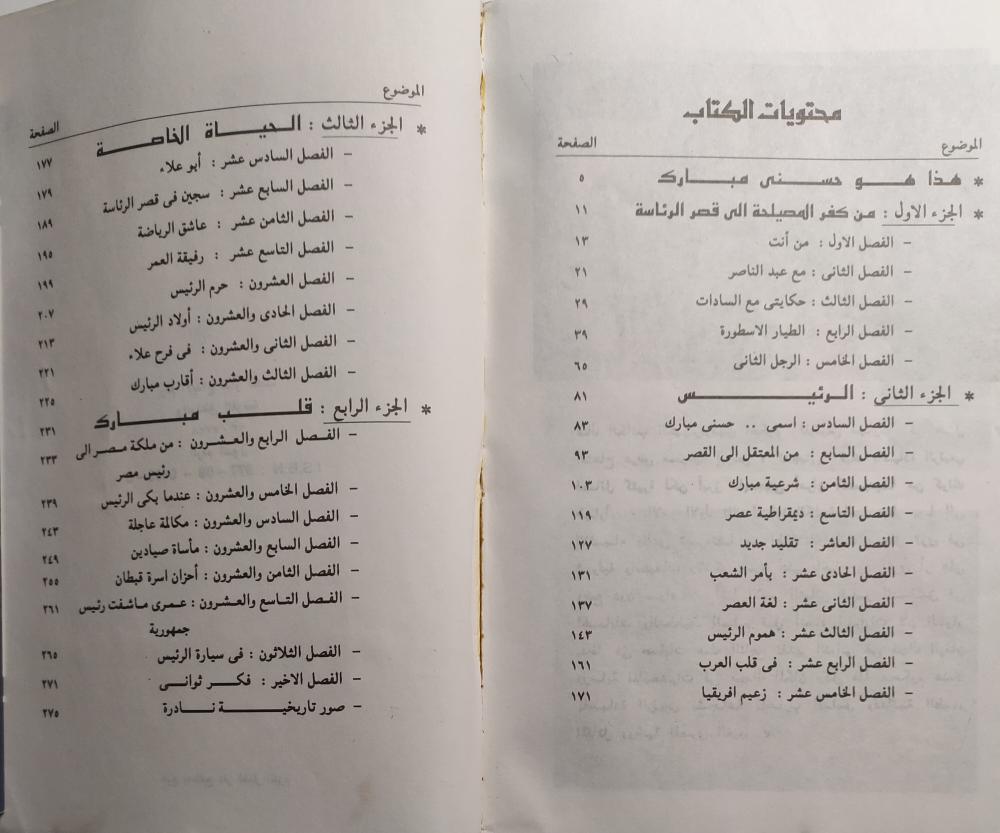 محتويات الكتاب
الموضوع الصفحة
* هذا هو حسنى مبارك ٥
* الجزء الاول : من كفر المصيلحة الى قصر الرئاسة ١١
– الفصل الاول : من أنت ١٣
– الفصل الثانى : مع عبد الناصر ٢١
– الفصل الثالث : حكايتى مع السادات ٢٩
– الفصل الرابع : الطيار الاسطورة ٣٩
– الفصل الخامس : الرجل الثانى ٦٥
* الجزء الثانى : الرئيس ٨١
– الفصل السادس : اسمى .. حسنى مبارك ٨٣
– الفصل السابع : من المعتقل الى القصر ٩٣
– الفصل الثامن : شرعية مبارك ١٠٣
– الفصل التاسع : ديمقراطية عصر ١١٩
– الفصل العاشر : تقليد جديد ١٢٧
– الفصل الحادى عشر : بأمر الشعب ١٣١
– الفصل الثانى عشر : لغة العصر ١٣٧
– الفصل الثالث عشر : هموم الرئيس ١٤٣
– الفصل الرابع عشر : فى قلب العرب ١٦١
– الفصل الخامس عشر : زعيم افريقيا ١٧١
الموضوع الصفحة
* الجزء الثالث : الحياة الخاصة ١٧٧
– الفصل السادس عشر : أبو علاء ١٧٩
– الفصل السابع عشر : سجين فى قصر الرئاسة ١٨٩
– الفصل الثامن عشر : عاشق الرياضة ١٩٥
– الفصل التاسع عشر : رفيقة العمر ١٩٩
– الفصل العشرون : حرم الرئيس ٢٠٧
– الفصل الحادى والعشرون : أولاد الرئيس ٢١٣
– الفصل الثانى والعشرون : فى فرح علاء ٢٢١
– الفصل الثالث والعشرون : أقارب مبارك ٢٢٥
* الجزء الرابع : قلب مبارك ٢٣١
– الفصل الرابع والعشرون : من ملكة مصر الى ٢٣٣
رئيس مصر
– الفصل الخامس والعشرون : عندما بكى الرئيس ٢٣٩
– الفصل السادس والعشرون : مكالمة عاجلة ٢٤٣
– الفصل السابع والعشرون : مأساة صيادين ٢٤٩
– الفصل الثامن والعشرون : أحزان اسرة قبطان ٢٥٥
– الفصل التاسع والعشرون : عمرى ماشفت رئيس ٢٦١
جمهورية
– الفصل الثلاثون : فى سيارة الرئيس ٢٦٥
– الفصل الاخير : فكر ثوانى ٢٧١
– صور تاريخية نادرة ٢٧٥